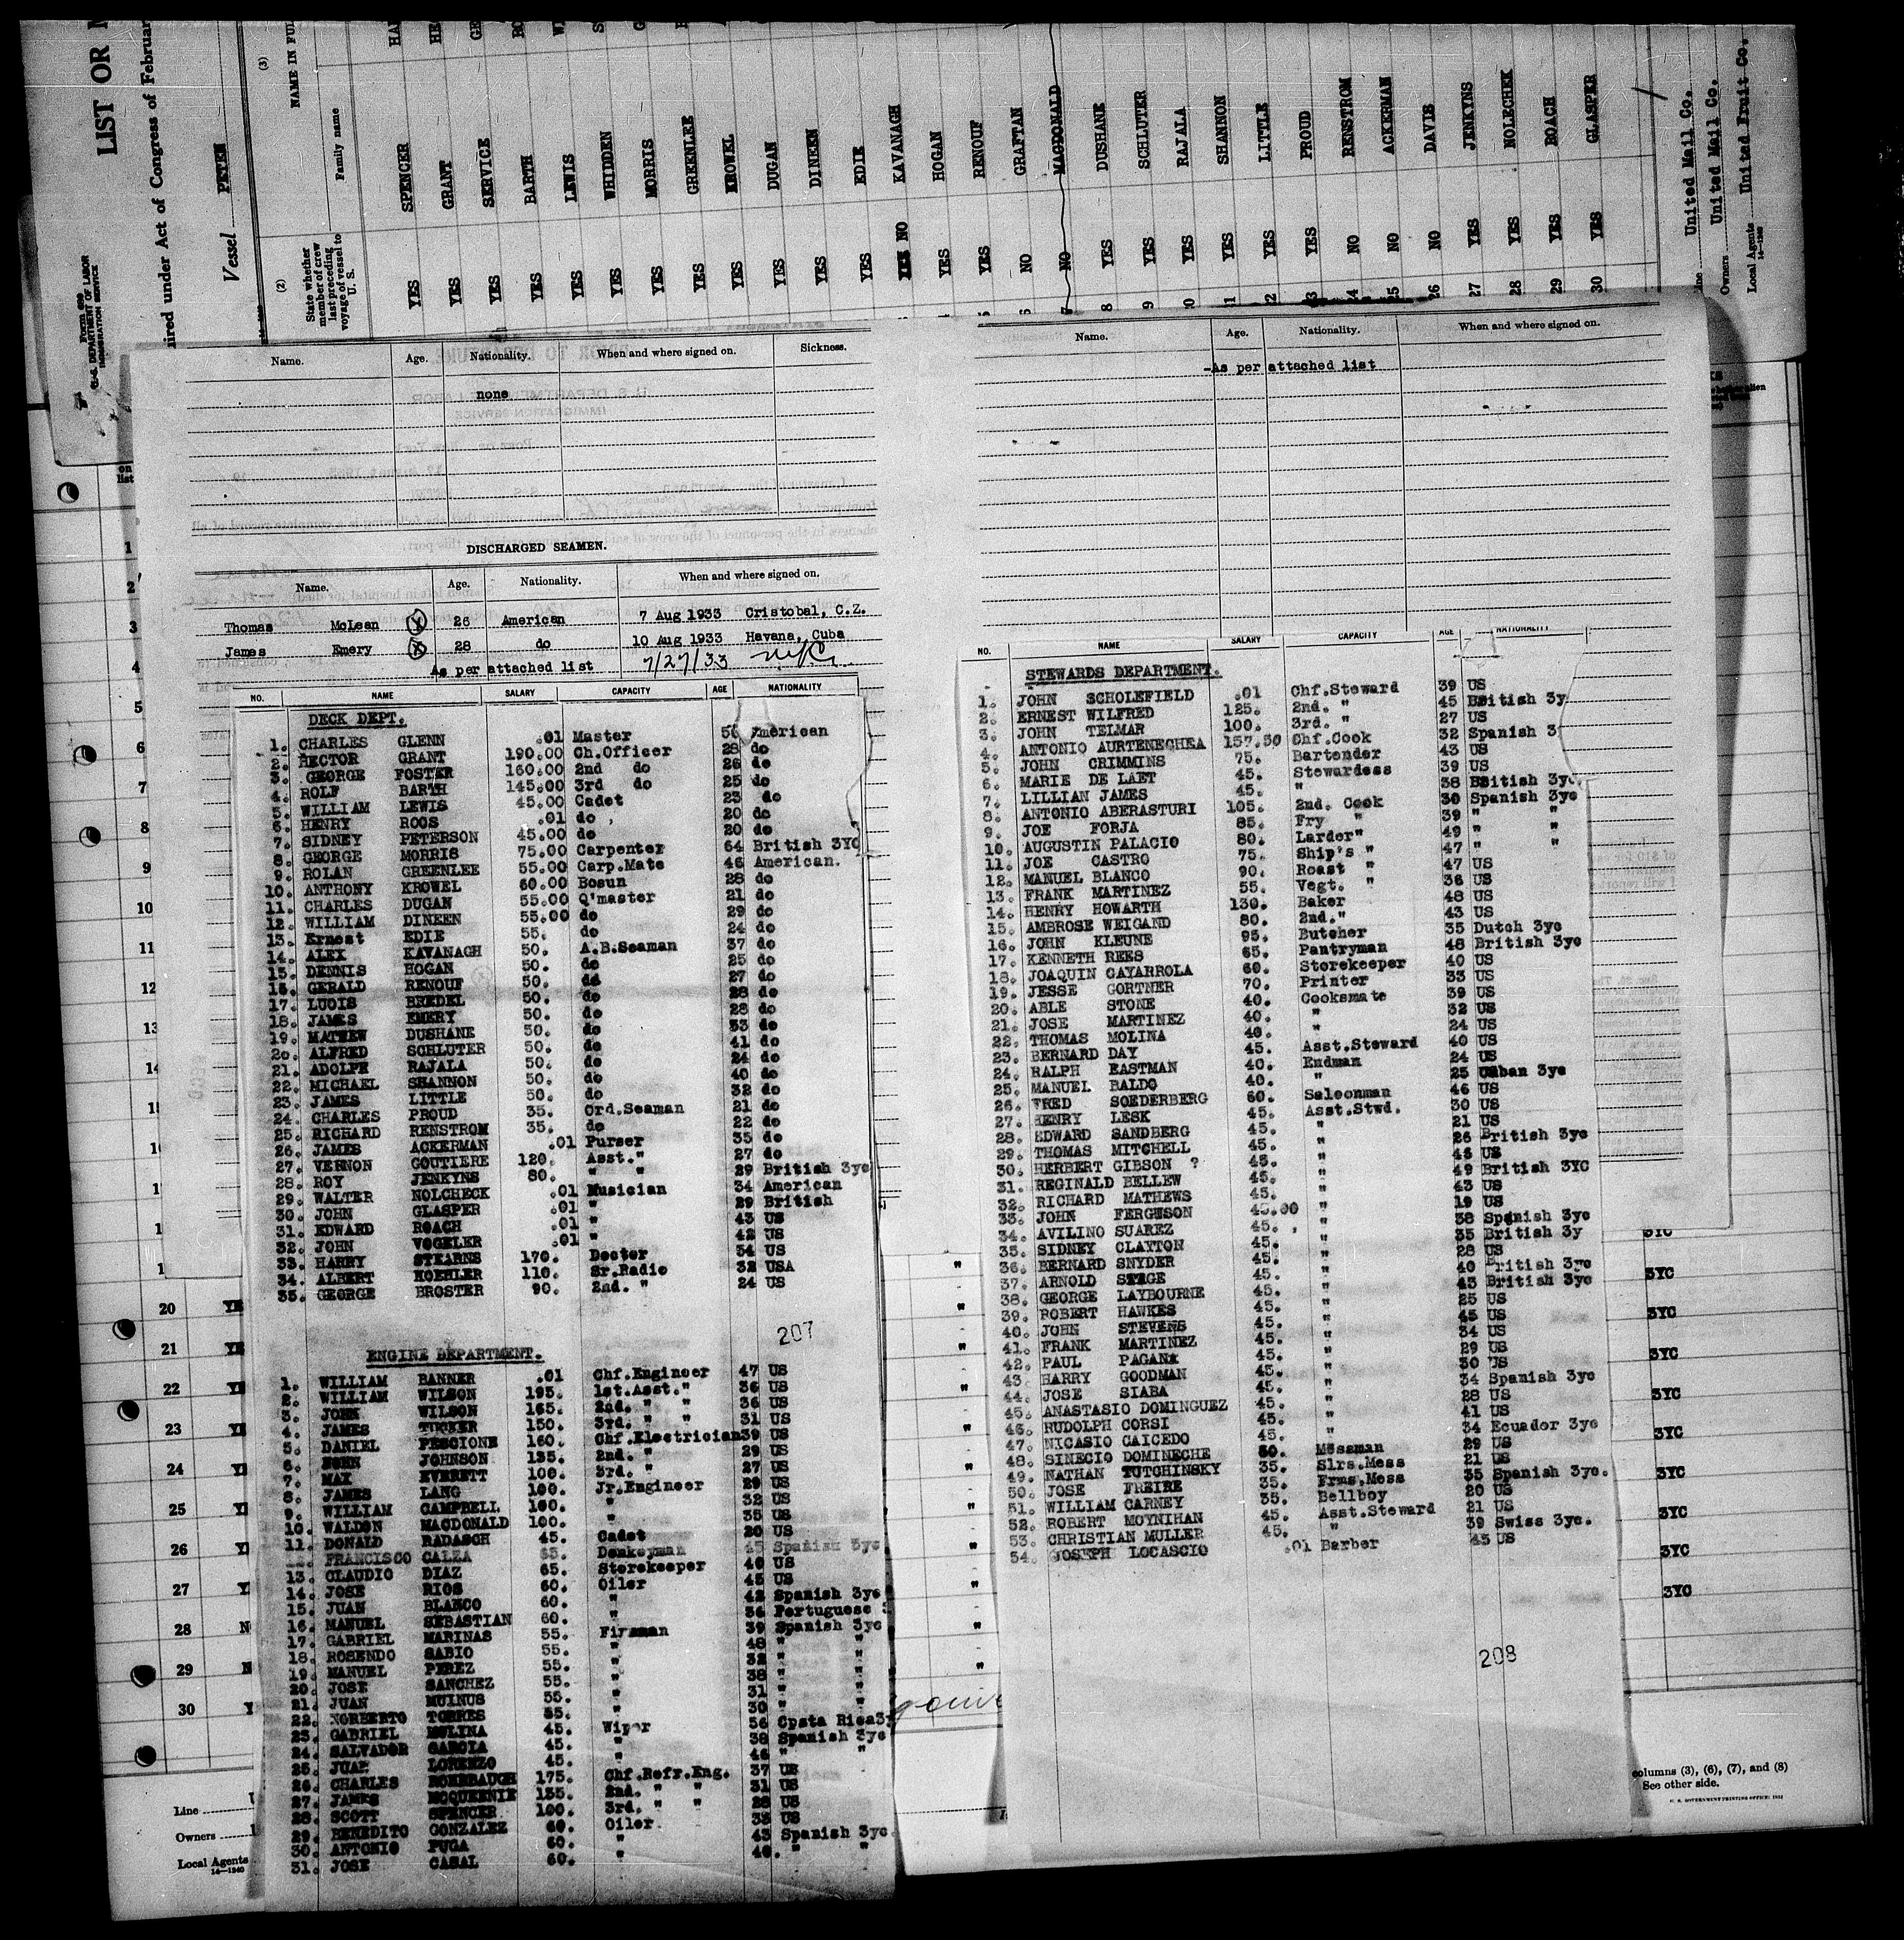 LIST OR
Form 689
U.S. DEPARTMENT OF LABOR
IMMIGRATION SERVICE
uired under Act of Congress of Februar
Vessel PETEN
(2)
State whether member of crew last preceding voyage of vessel to U. S.
(3)
NAME IN FUL
Family name
YES SPENCER
YES GRANT
YES SERVICE
YES BARTH
YES LEWIS
YES WHIDDEN
YES MORRIS
YES GREENLEE
YES KROWEL
YES DUGAN
YES DINEEN
YES EDIE
NO KAVANAGH
YES HOGAN
YES RENOUF
NO GRAFTAN
NO MACDONALD
YES DUSHANE
YES SCHLUTER
YES RAJALA
YES SHANNON
YES LITTLE
YES PROUD
NO RENSTROM
NO ACKERMAN
26 NO DAVIE
27 YES JENKYNS
28 YES NOLECHEK
29 YES ROACH
30 YES GLASPER
Line United Mail Co.
Owners United Mail Co.
Local Agents United Fruit Co.
14—1240
Name. Age. Nationality. When and where signed on. Sickness.
none
DISCHARGED SEAMEN.
Name. Age. Nationality. When and where signed on.
Thomas McLean X 26 American 7 Aug 1933 Cristobal, C.Z.
James Emery X 28 do 10 Aug 1933 Havana, Cuba
As per attached list 7/27/33
NO. NAME SALARY CAPACITY AGE NATIONALITY
DECK DEPT.
1. CHARLES GLENN .01 Master American
2. HECTOR GRANT 190.00 Ch.Officer 28 do
3. GEORGE FOSTER 160.00 2nd do 26 do
4. ROLF BARTH 145.00 3rd do 25 do
5. WILLIAM LEWIS 45.00 Cadet 23 do
6. HENRY ROOS .01 do 20 do
7. SIDNEY PETERSON 45.00 do 20 do
8. GEORGE MORRIS 75.00 Carpenter 64 British 3YC
9. ROLAN GREENLEE 55.00 Carp.Mate 46 American.
10. ANTHONY KROWEL 60.00 Bosun 28 do
11. CHARLES DUGAN 55.00 Q'master 21 do
12. WILLIAM DINEEN 55.00 do 29 do
13. Ernest EDIE 55. do 24 do
14. ALEX KAVANAGH 50. A.B.Seaman 37 do
15. DENNIS HOGAN 50. do 25 do
16. GERALD RENOUF 50. do 27 do
17. LUOIS BREDEL 50. do 28 do
18. JAMES EMERY 50. do 28 do
19. MATHEW DUSHANE 50. do 33 do
20. ALFRED SCHLUTER 50. do 41 do
21. ADOLPH RAJALA 50. do 24 do
22. MICHAEL SHANNON 50. do 40 do
23. JAMES LITTLE 50. do 32 do
24. CHARLES PROUD 35. Ord.Seaman 21 do
25. RICHARD RENSTROM 35. do 22 do
26. JAMES ACKERMAN .01 Purser 35 do
27. VERNON GOUTIERE 120. Asst." 27 do
28. ROY JENKYNS 80. " " 29 British 3yc
29. WALTER NOLCHECK .01 Musician 34 American
30. JOHN GLASPER .01 " 29 British
31. EDWARD ROACH .01 " 43 US
32. JOHN VOGELER .01 " 42 US
33. HARRY STEARNS 170. Doctor 54 US
34. ALBERT KOEHLER 110. Sr.Radio 32 USA
35. GEORGE BROSTER 90. 2nd. " 24 US
207
ENGINE DEPARTMENT.
1. WILLIAM BANNER .01 Chf.Engineer 47 US
2. WILLIAM WILSON 195. 1st.Asst." 36 US
3. JOHN WILSON 165. 2nd. " " 36 US
4. JAMES TUCKER 150. 3rd. " " 31 US
5. DANIEL PESCIONE 160. Chf.Electrician 39 US
6. JOHN JOHNSON 135. 2nd. " 29 US
7. MAX EVERETT 100. 3rd. " 27 US
8. JAMES LANG 100. Jr.Engineer 29 US
9. WILLIAM CAMPBELL 100. " 32 US
10. WALDON MACDONALD 100. " 35 US
11. DONALD RADASCH 45. Cadet 20 US
FRANCISCO CALZA 65. Donkeyman 45 Spanish 3yc
13. CLAUDIO DIAZ 65. Storekeeper 40 US
14. JOSE RIOS 60. Oiler 45 US
15. JUAN BLANCO 60. " 42 Spanish 3yc
16. MANUEL SEBASTIAN 60. " 36 Portuguese
17. GABRIEL MARINAS 55. Fireman 39 Spanish 3yc
18. ROSENDO SABIO 55. " 48 " "
19. MANUEL PEREZ 55. " 32 " "
20. JOSE SANCHEZ 55. " 38 " "
21. JUAN MUINUS 55. " 31 " "
22. NORBERTO TORRES 55. " 30 " "
23. GABRIEL MOLINA 45. Wiper 56 Cpsta Rica3y
24. SALVADOR GARCIA 45. " 38 Spanish 3yc
25. JUAN LORENZO 45. " 46 " "
26. CHARLES ROHRBAUGH 175. Chf.Refr.Eng. 37 US
27. JAMES MCQUEENIE 135. 2nd. " " 31 US
28. SCOTT SPENCER 100. 3rd. " " 28 US
29. BENEDITO GONZALEZ 60. Oiler 38 US
30. ANTONIO PUGA 60. " 43 Spanish 3yc.
31. JOSE CASAL 60. " 40. " "
Name. Age. Nationality. When and where signed on.
-As per attached list
NO. NAME SALARY CAPACITY AGE NATIONALITY
STEWARDS DEPARTMENT.
1. JOHN SCHOLEFIELD .01 Chf.Steward 39 US
2. ERNEST WILFRED 125. 2nd. " 45 British 3y
3. JOHN TELMAR 100. 3rd. " 27 US
4. ANTONIO AURTENECHEA 157.50 Chf.Cook 32 Spanish 3
5. JOHN CRIMMINS 75. Bartender 43 US
6. MARIE DE LAET 45. Stewardess 39 US
7. LILLIAN JAMES 45. " 38 British 3yc.
8. ANTONIO ABERASTURI 105. 2nd. Cook 30 Spanish 3yc
9. JOE FORJA 85. Fry " 39 " "
10. AUGUSTIN PALACIO 80. Larder" 49 " "
11. JOE CASTRO 75. Ship's " 47 " "
12. MANUEL BLANCO 90. Roast " 47 US
13. FRANK MARTINEZ 55. Vegt. " 36 US
14. HENRY HOWARTH 130. Baker 48 US
15. AMBROSE WEIGAND 80. 2nd." 43 US
16. JOHN KLEUNE 95. Butcher 35 Dutch 3yc
17. KENNETH REES 65. Pantryman 48 British 3yc
18. JOAQUIN GAYARROLA 60. Storekeeper 40 US
19. JESSE GORTNER 70. Printer 33 US
20. ABLE STONE 40. Cooksmate 39 US
21. JOSE MARTINEZ 40. " 32 US
22. THOMAS MOLINA 40. " 24 US
23. BERNARD DAY 45. Asst.Steward 40 US
24. RALPH EASTMAN 40. Endman 24 US
25. MANUEL BALDO 40. " 25 Cuban 3yc
26. FRED SOEDERBERG 60. Saloonman 46 US
27. HENRY LESK 45. Asst.Stwd. 30 US
28. EDWARD SANDBERG 45. " 21 US
29. THOMAS MITCHELL 45. " 26 British 3yc
30. HERBERT GIBSON ? 45. " 45 US
31. REGINALD BELLEW 45. " 49 British 3YC
32. RICHARD MATHEWS 45. " 43 US
33. JOHN FERGUSON 45.00 " 19 US
34. AVILINO SUAREZ 45. " 38 Spanish 3yc
35. SIDNEY CLAYTON 45. " 35 British 3y
36. BERNARD SNYDER 45. " 28 US
37. ARNOLD STAGE 45. " 40 British 3yc
38. GEORGE LAYBOURNE 45. " 43 British 3yc
39. ROBERT HAWKES 45. " 25 US
40. JOHN STEVENS 45. " 45 US
41. FRANK MARTINEZ 45. " 34 US
42. PAUL PAGANI 45. " 29 US
43. HARRY GOODMAN 45. " 30 US
44. JOSE SIABA 45. " 34 Spanish 3yc
45. ANASTASIO DOMINGUEZ 45. " 28 US
46. RUDOLPH CORSI 45. " 41 US
47. NICASIO CAICEDO 45. " 34 Ecuador 3yc
48. SINECIO DOMINECHE 50. Messman 29 US
49. NATHAN TUTCHINSKY 35. Slrs.Mess 21 US
50. JOSE FREIRE 35. Frms.Mess 35 Spanish 3yc.
51. WILLIAM CARNEY 35. Bellboy 20 US
52. ROBERT MOYNIHAN 45. Asst.Steward 21 US
53. CHRISTIAN MULLER 45. " 39 Swiss 3yc.
54. JOSEPH LOCASCIO .01 Barber 43 US
208
1
2
3
4
5
6
7
8
9
10
11
12
13
14
20
21
22
23
24
25
26
27
28
29
30
3YC
3YC
3YC
3YC
3YC
3YC
3YC
3YC
3YC
Line
Owners
Local Agents
14—1240
columns (3), (6), (7), and (8)
See other side.
U. S. GOVERNMENT PRINTING OFFICE: 1932